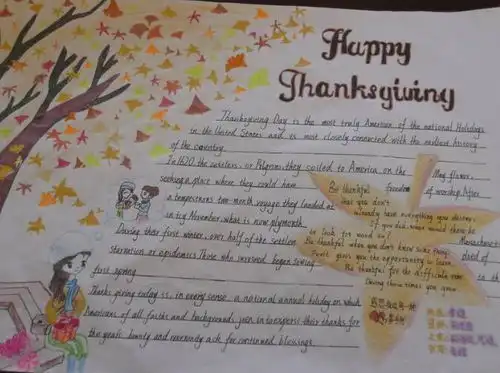 Happy
Thanksgiving
Thanksgiving Day is the most truly American of the national Holidays
in the United States and is most closely connected with the earliest history
of the country.
In 1620, the settlers, or Pilgrims, they sailed to America on the May flower,
seeking a place where they could have freedom of worship. After
a tempestuous two-month voyage they landed at
in icy November, what is now plymouth Massachuset
During their first winter, over half of the settlers died of
starvation or epidemics. Those who survived began sowing in the
first spring
Thanks giving today is, in every sense, a national annual holiday on which
Americans of all faiths and backgrounds join in to express their thanks for
the year's bounty and reverently ask for continued blessings.
Be thankful
that you don't
already have everything you desire.
If you did, what would there be
to look for ward to?
Be thankful when you don't know some thing
gives you the opportunity to learn
Be thankful for the difficult times
During those times you grow